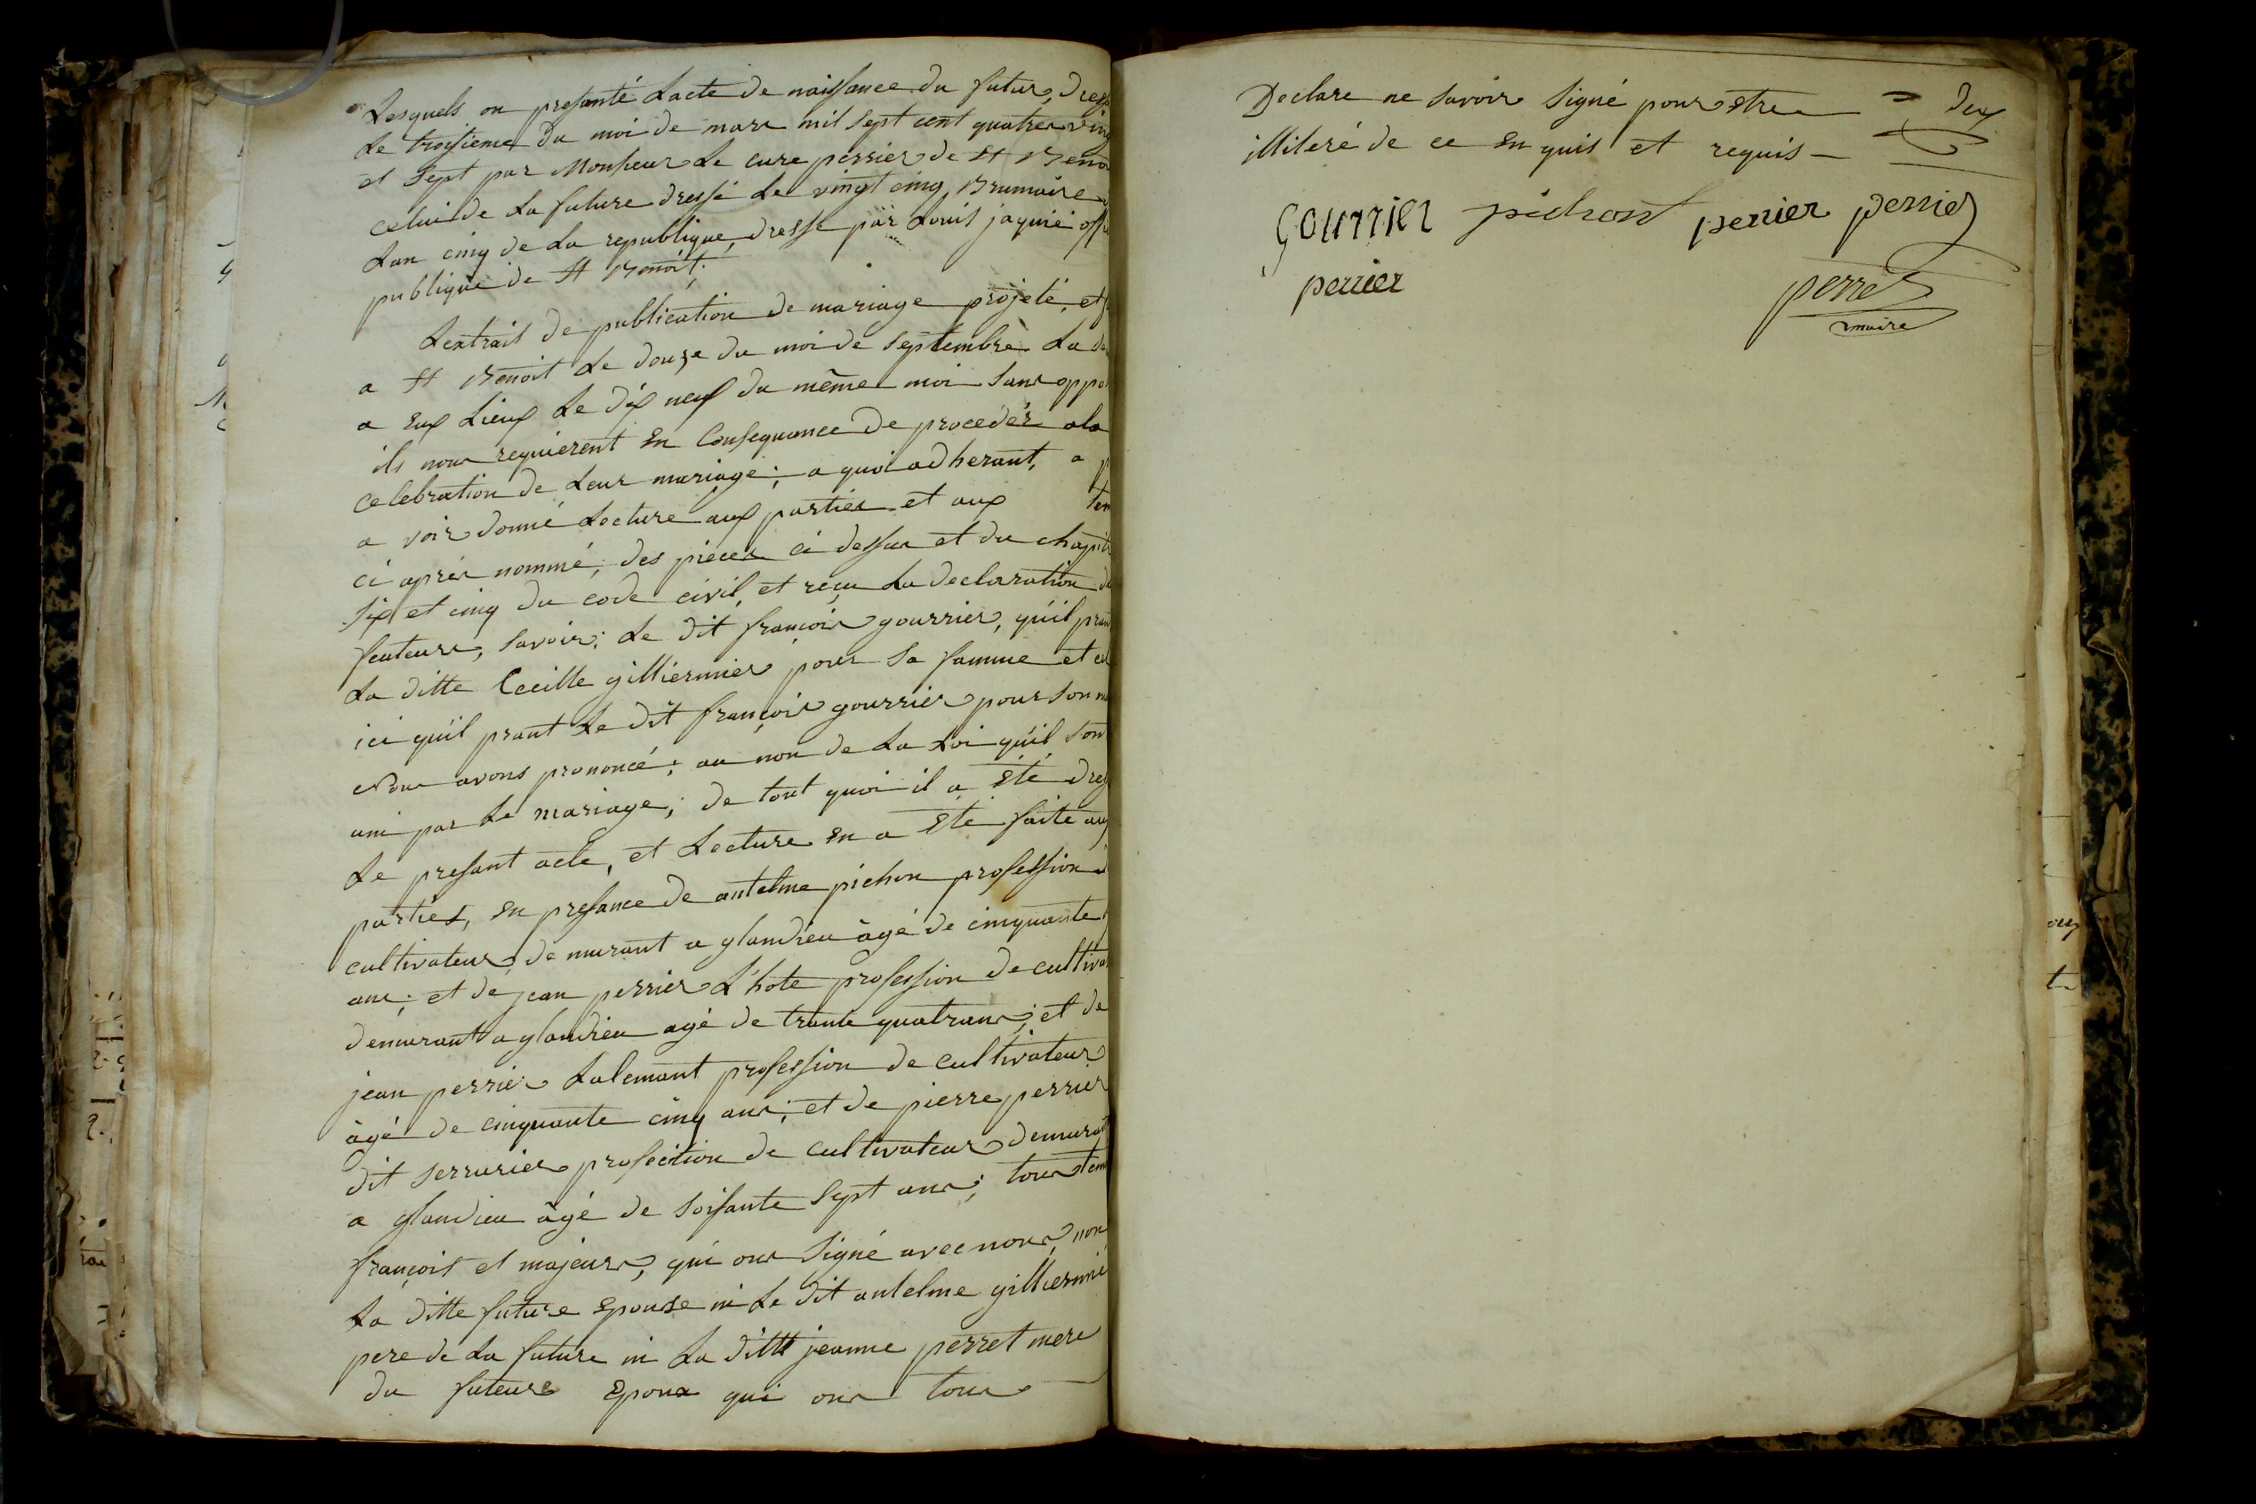 Lesquels on presanté Lacte de naissance du futur, dress
Le troisieme du moi de mars mil sept cent quatre ving
et sept par Monsieur Le cure perrier de St Benoi
celui de La future dressé Le vingt cinq Brumaire
Lan cinq de La republique, dresse par Louis jaquié offi
publique de St Benoit.
Lextrais de publication de mariage projeté, et f
a St Benoit Le douze du moi de septembre La d
a eux Lieux Le dix neuf du même moi sans oppo
ils nous requierent en Consequance de proceder a la
celebration de Leur mariage; a quoi adherant, a p
a voir donné Lecture aux parties et aux tem
ci aprés nommé, des pieces ci dessus et du chapit
six et cinq du code civil, et reçu La declaration d
feuteurs, savoir; Le dit françois gourrier, qu'il pran
La ditte Cecille gilliermier pour sa famme et cel
ici qu'il prant Le dit françois gourrier pour son m
Nous avons prononcé; au non de La Loi qu'il son
uni par Le mariage; de tout quoi il a Eté dres
Le presant acte, et Lecture en a Eté faite aux
parties, en presance de antelme pichon profession d
cultivateur, demurant a glandieu âgé de cinquante
ans; et de jean perrier L'hote profession de cultiva
demurant a glandieu agé de trante quatrans; et de
jean perrier Lalemant profession de cultivateur
âgé de cinquante cinq ans; et de pierre perrier
dit serrurier profection de cultivateur demurant
a glandieu âgé de soisante sept ans; tous tem
françois et majeurs, qui ons signé avec nous, non
La ditte future Epouse ni Le dit antelme gilliermié
pere de La future ni La ditte jeanne perret mere
du futeure Epoux qui ons tous
Declare ne savoir signé pour être
illiteré de ce enquis et requis
gourrier pichont perrier perrier
perrier
perret
maire